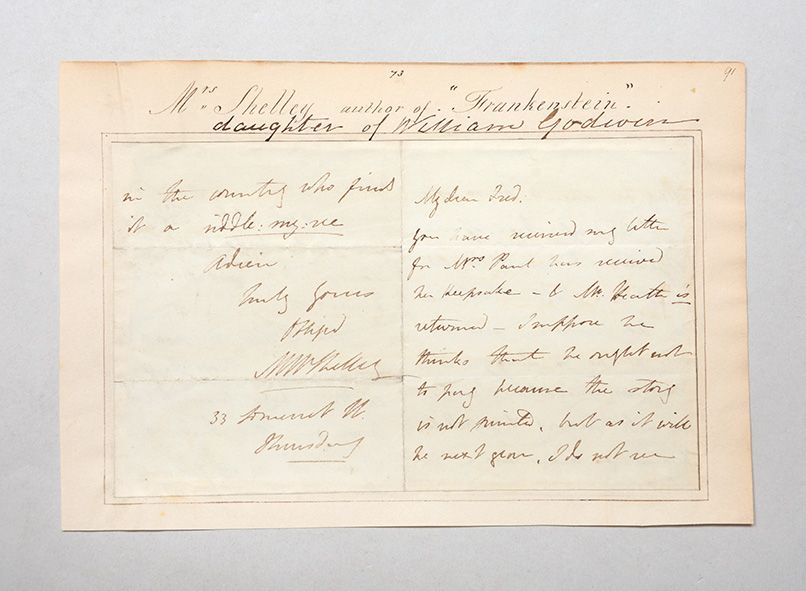 73
91
Mrs. Shelley author of "Frankenstein".
daughter of William Godwin
My dear Fred.
You have received my letter
for Mrs Paul has received
her Keepsake – & Mr. Heath is
returned – I suppose he
thinks that he ought not
to pay because the story
is not printed, but as it will
be next year, I do not see
in the country who finds
it a riddle:my:ree
Adieu
Truly Yours
Obligd
MWShelley
33 Somerset St.
Thursday